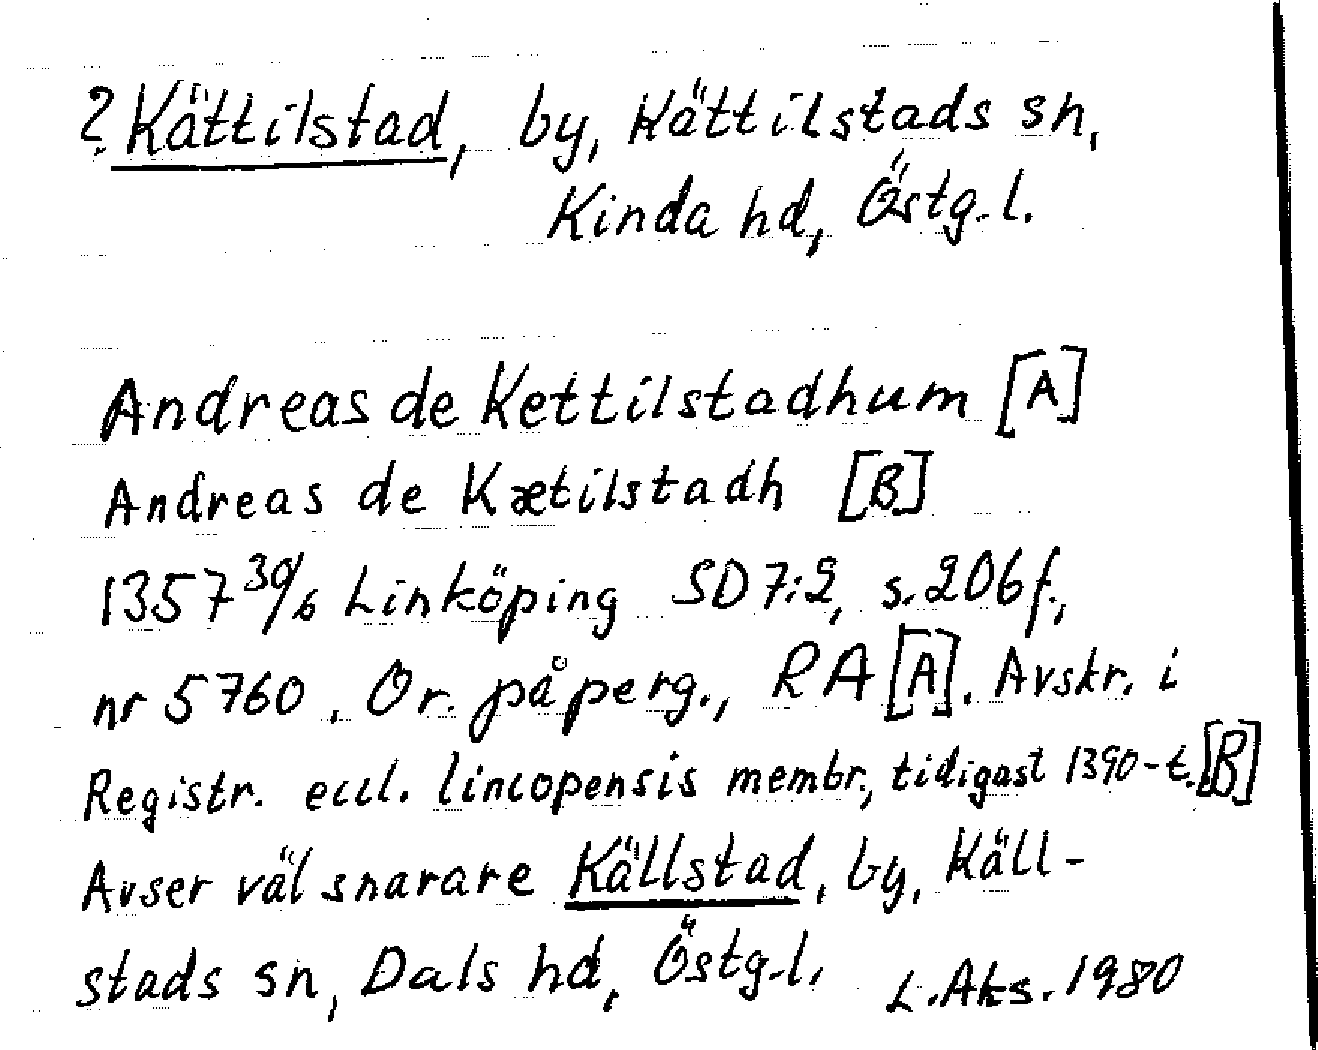 ? Kättilstad, by, Kättilstads sn,
Kinda hd, Östg.l.
Andreas de Kettilstadhum [A]
Andreas de Kætilstadh [B]
1357 30/6 Linköping SD 7:2, s. 206 f.,
nr 5760. Or. på perg., RA [A]. Avskr. i
Registr. eccl. lincopensis membr., tidigast 1390-t. [B]
Avser väl snarare Källstad, by, Käll-
stads sn, Dals hd, Östg.l.
L. Aks. 1980